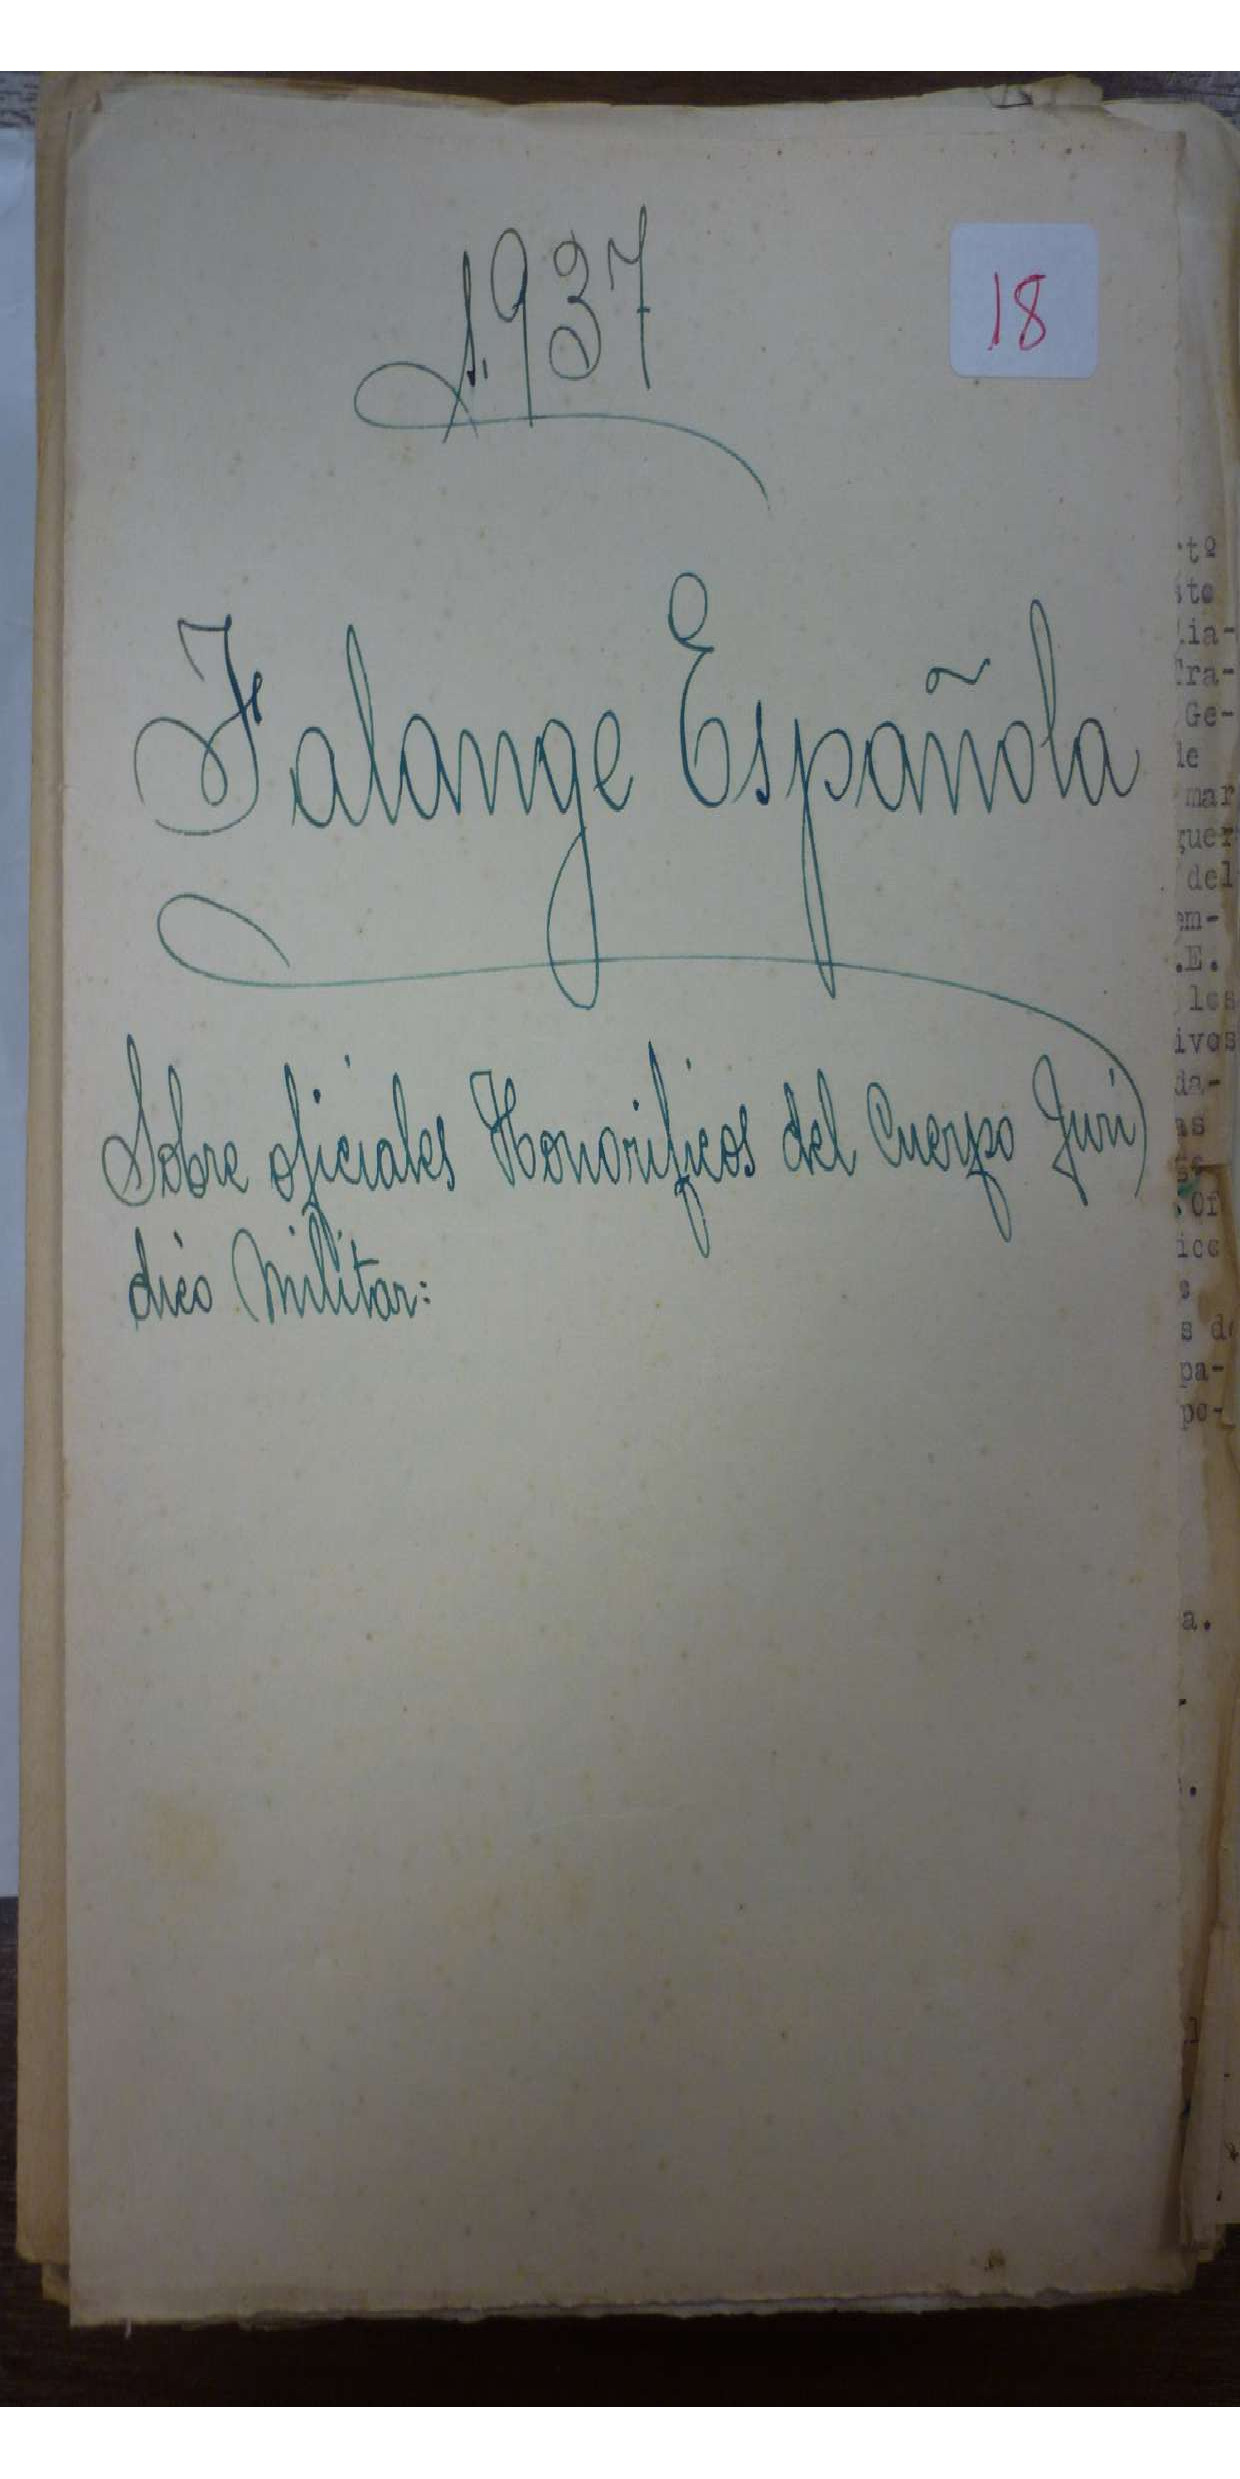 1.937
18
Falange Española
Sobre oficiales Honorificos del Cuerpo Juri
dico Militar:
tº
ste
lia-
Tra-
Ge-
de
mar
guer
del
em-
.E.
los
ivos
da-
as
Of
ios
s de
pa-
po-
a.